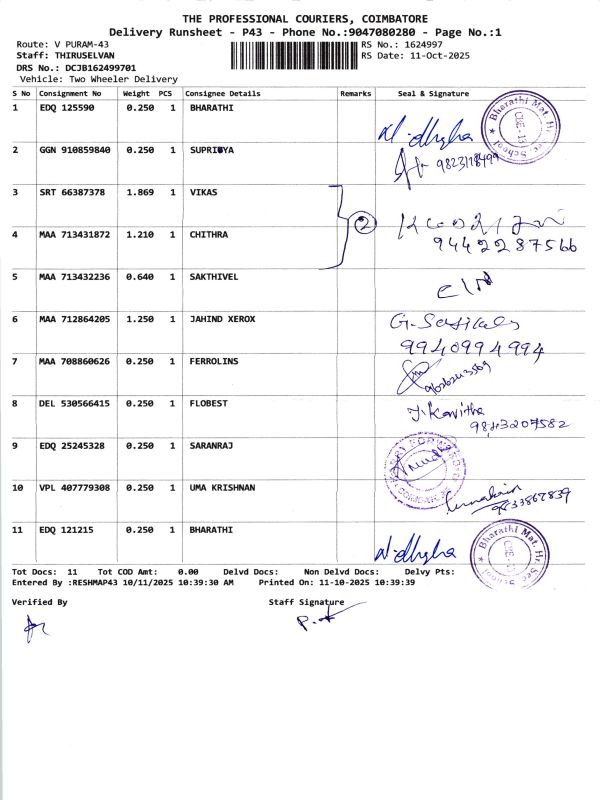 THE PROFESSIONAL COURIERS, COIMBATORE
Delivery Runsheet - P43 - Phone No.:9047080280 - Page No.:1
Route: V PURAM-43 RS No.: 1624997
Staff: THIRUSELVAN RS Date: 11-Oct-2025
DRS No.: DCJB162499701
Vehicle: Two Wheeler Delivery
S No Consignment No Weight PCS Consignee Details Remarks Seal & Signature
1 EDQ 125590 0.250 1 BHARATHI
Bharathi Mat. Hr. Sec. School
CBE-13
2 GGN 910859840 0.250 1 SUPRIYA
3 SRT 66387378 1.869 1 VIKAS
2
4 MAA 713431872 1.210 1 CHITHRA 9442287566
5 MAA 713432236 0.640 1 SAKTHIVEL
6 MAA 712864205 1.250 1 JAHIND XEROX
9940994994
7 MAA 708860626 0.250 1 FERROLINS
8 DEL 530566415 0.250 1 FLOBEST J. Kavitha
9843207582
9 EDQ 25245328 0.250 1 SARANRAJ
10 VPL 407779308 0.250 1 UMA KRISHNAN
11 EDQ 121215 0.250 1 BHARATHI
Bharathi Mat. Hr. Sec. School
CBE-13
Tot Docs: 11 Tot COD Amt: 0.00 Delvd Docs: Non Delvd Docs: Delvy Pts:
Entered By :RESHMAP43 10/11/2025 10:39:30 AM Printed On: 11-10-2025 10:39:39
Verified By Staff Signature